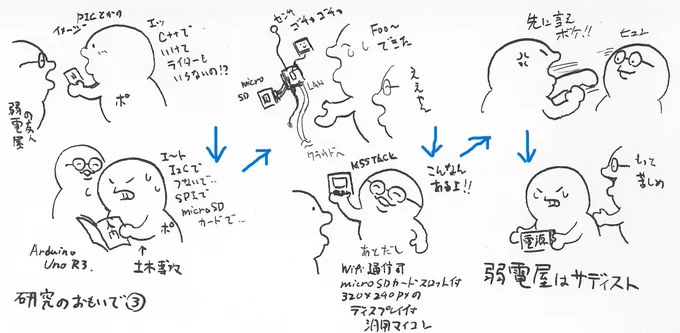 PICとかの
イメージ
エッ
C++で
いけて
ライターも
いらないの!?
ポ
弱電屋
の友人
Arduino
Uno R3.
入門
エート
I2Cで
つないで…
SPIで
microSD
カードで…
ポ
土木専攻
研究のおもいで③
センサ
ゴチャゴチャ
micro
SD
LAN
クラウドへ
Foo~
できた
ええやん
M5STACK
こんなん
あるよ!!
あとだし
WiFi通信可
microSDカードスロット付
320×240pxの
ディスプレイ付
汎用マイコン
先に言え
ボケ!!
ヒョイ
電源
もって
苦しめ
弱電屋はサディスト